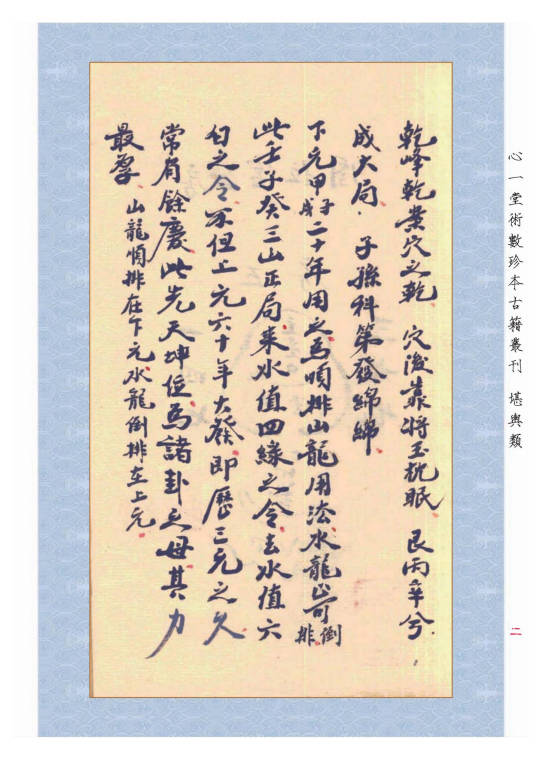 乾峰乾葉穴之乾 穴後靠將玉枕眠 艮丙辛兮
成大局 子孫科第發綿綿
下元甲子戌二十年用之爲順排山龍用法水龍當倒排
此壬子癸三山正局來水值四綠之令去水值六
白之令不但上元六十年大發即歷三元之久
常有餘慶此先天坤位爲諸卦之母其力
最孕 山龍順排在下元水龍倒排在上元
心一堂術數珍本古籍叢刊 堪輿類
二